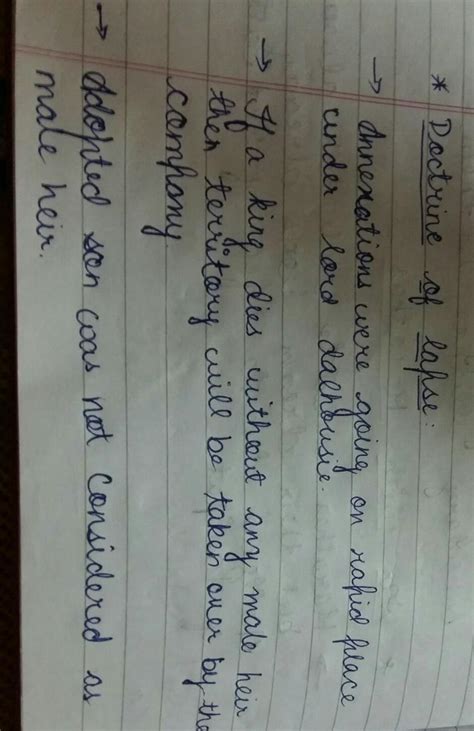 * Doctrine of lapse:
→ Annexations were going on rapid place
under lord dalhousie.
→ If a king dies without any male heir
then territory will be taken over by the
company
→ Adopted son was not considered as
male heir.